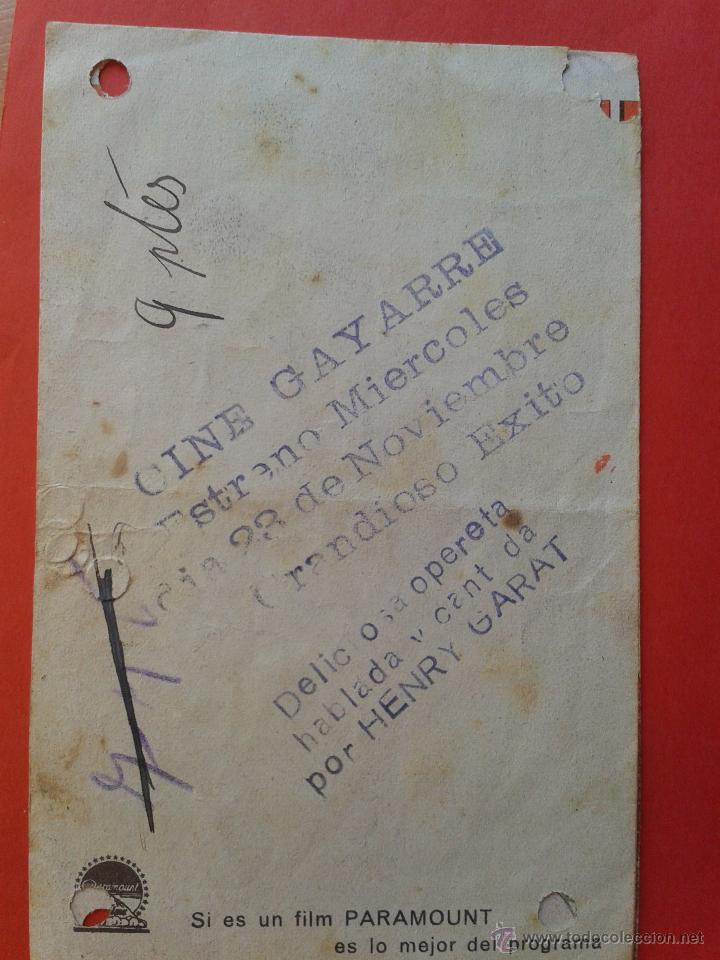 9 ptes
CINE GAYARRE
Estreno Miercoles
dia 23 de Noviembre
Grandioso Exito
Deliciosa opereta
hablada y cantada
por HENRY GARAT
Paramount
Si es un film PARAMOUNT
es lo mejor del programa
© todocoleccion.net